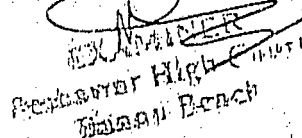 EXAMINER
Peshawar High Court
Bench